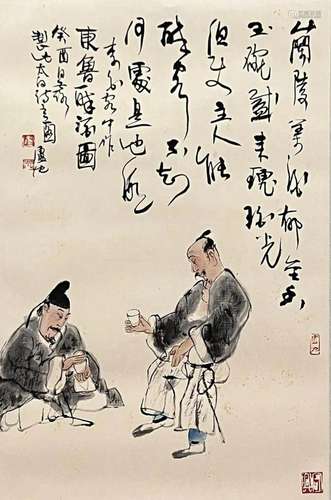 蘭陵美酒郁金香
玉碗盛来琥珀光
但使主人能
醉客不知
何處是他鄉
李白客中作
東魯醉圖
癸酉
製此太白詩意圖